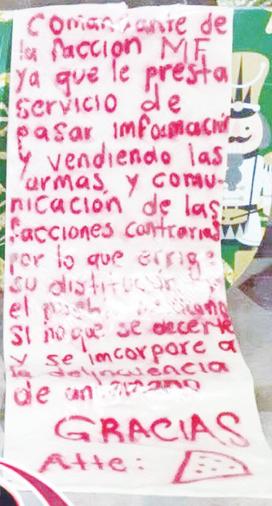 Comandante de
la faccion MF
ya que le presta
servicio de
pasar informacion
y vendiendo las
armas, y comu-
nicación de las
facciones contrarias
por lo que errige
su distitución
el
si no que se decerte
y se incorpore a
la delincuencia
de
GRACIAS
Atte: